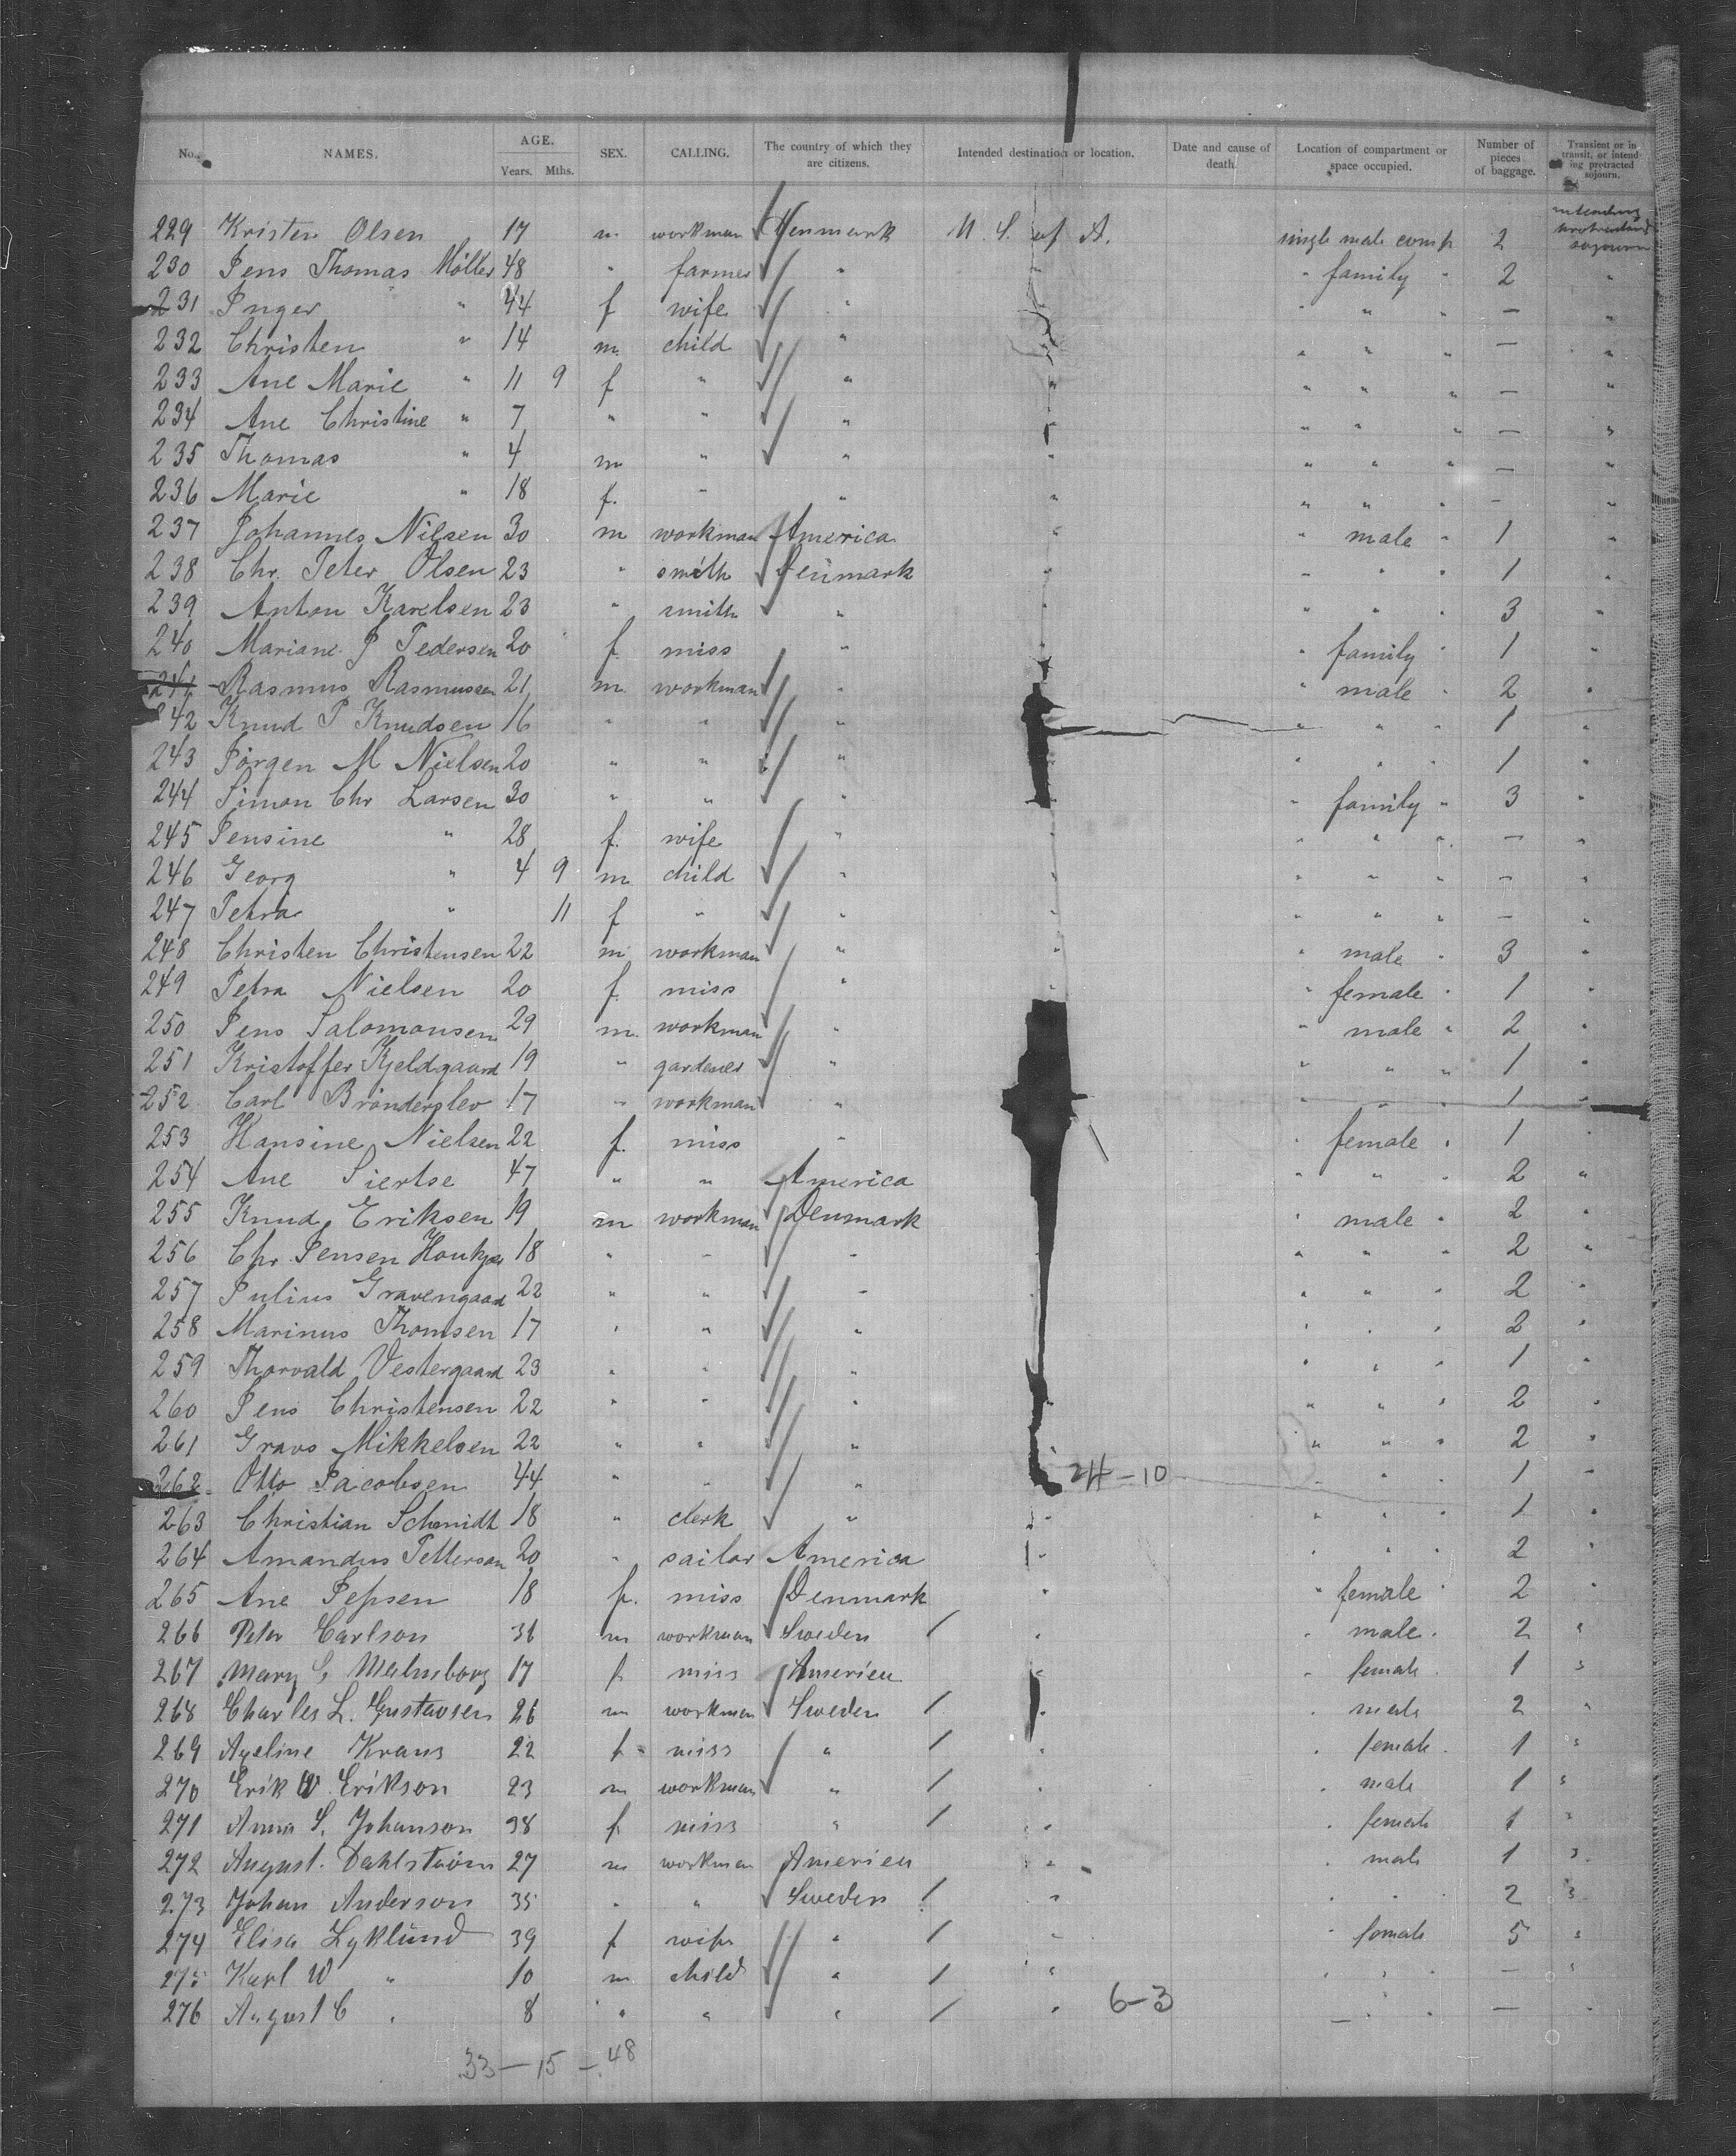 No. NAMES. AGE. Years. Mths. SEX. CALLING. The country of which they are citizens. Intended destination or location. Date and cause of death. Location of compartment or space occupied. Number of pieces of baggage. Transient or in transit, or intending protracted sojourn.
229 Kristen Olsen 17 m workman Denmark U. S. of A. single male comp 2 intending protracted sojourn
230 Jens Thomas Möller 48 " farmer " " " family " 2 "
231 Inger " 44 f wife " " " " — "
232 Christen " 14 m. child " " " " — "
233 Ane Marie " 11 9 f " " " " " " — "
234 Ane Christine " 7 " " " " " " — "
235 Thomas " 4 m " " " " " " — "
236 Marie " 18 f. " " " " " " - "
237 Johannes Nielsen 30 m workman America " " male " 1
238 Chr. Peter Olsen 23 " smith Denmark " " " " 1 "
239 Anton Karelsen 23 " smith " " " " " 3 "
240 Mariane P Pedersen 20 f miss " " " family " 1 "
241 Rasmus Rasmussen 21 m. workman " " male " 2 "
242 Knud P Knudsen 16 " " " " " " 1 "
243 Jörgen M Nielsen 20 " " " " " " 1 "
244 Simon Chr Larsen 30 " " " " family " 3 "
245 Jensine " 28 f. wife " " " " " — "
246 Georg " 4 9 m child " " " " " — "
247 Petra " 11 f " " " " " " — "
248 Christen Christensen 22 m workman " " " male " 3 "
249 Petra Nielsen 20 f miss " " female " 1 "
250 Jens Salomonsen 29 m. workman " " male " 2 "
251 Kristoffer Kjeldgaard 19 " gardener " " " " 1 "
252 Carl Brönderslev 17 " workman " " " " 1 "
253 Hansine Nielsen 22 f. miss " " female " 1 "
254 Ane Siertse 47 " " America " " " 2 "
255 Knud Eriksen 19 m workman Denmark " male " 2 "
256 Chr Jensen 18 " " " " " " 2 "
257 Julius Gravengaard 22 " " " " " " 2 "
258 Marinus Thomsen 17 " " " " " " 2 "
259 Thorvald Vestergaard 23 " " " " " " 1 "
260 Jens Christensen 22 " " " " " " " 2 "
261 Gravs Mikkelsen 22 " " " " " " 2 "
262 Otto Jacobsen 44 " " " 24-10 " " 1 "
263 Christian Schmidt 18 " clerk " " " " " 1 "
264 Amandus Petterson 20 " sailor America " " " " 2 "
265 Ane Jepsen 18 f. miss Denmark " " female " 2 "
266 Peter Carlson 36 m workman Sweden / " " male " 2 "
267 Mary S Malmborg 17 f miss America " " female " 1 "
268 Charles L. Gustavsen 26 m workman Sweden / " " male 2 "
269 Axeline Kraus 22 f miss " / " " female " 1 "
270 Erik W Erikson 23 m workman " / " " male 1 "
271 Anna S. Johanson 38 f miss " / " " female 1 "
272 August Dahlstrom 27 m workman America " " male 1 "
273 Johan Anderson 35 " " Sweden / " " " 2 "
274 Elisa Lyklund 39 f wife " / " " female 5 "
275 Karl W " 10 m child " / " " " " — "
276 August C " 8 " " " / " 6-3 " " — "
33 — 15 — 48